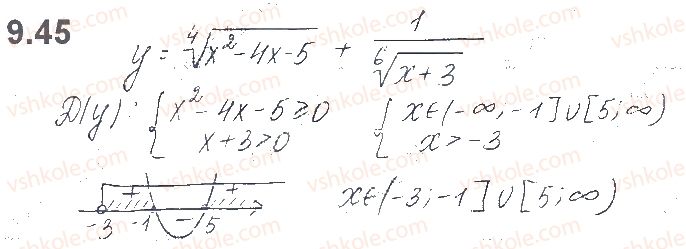 9.45
y = ⁴√(x² - 4x - 5) + 1/⁶√(x + 3)
D(y): { x² - 4x - 5 ≥ 0 { x ∈ (-∞; -1] ∪ [5; ∞)
x + 3 > 0 x > -3
+ - +
-3 -1 5 x ∈ (-3; -1] ∪ [5; ∞)
vshkole.com